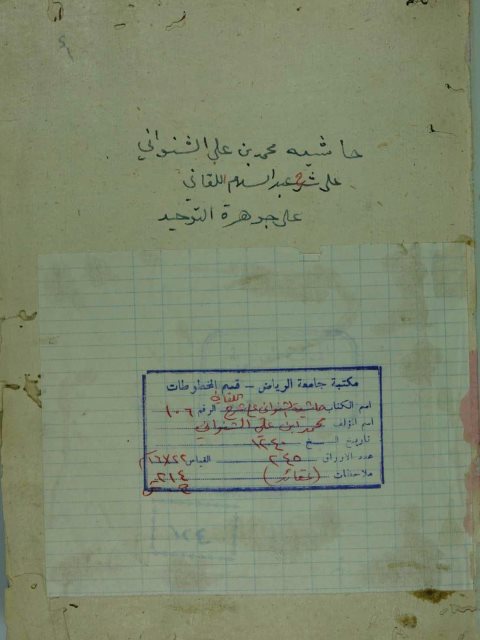 حاشيه محمد بن علي الشنواني
على شرح عبد السلام اللقاني
على جوهرة التوحيد
مكتبة جامعة الرياض - قسم المخطوطات
اللقاني
اسم الكتاب حاشية الشنواني على شرح الرقم ١٠٦
اسم المؤلف محمد بن علي الشنواني
تاريخ النسخ ١٢٤٠
عدد الأوراق ٢٤٥ القياس ٢٢×١٦
ملاحظات (عقائد) ٢١٤